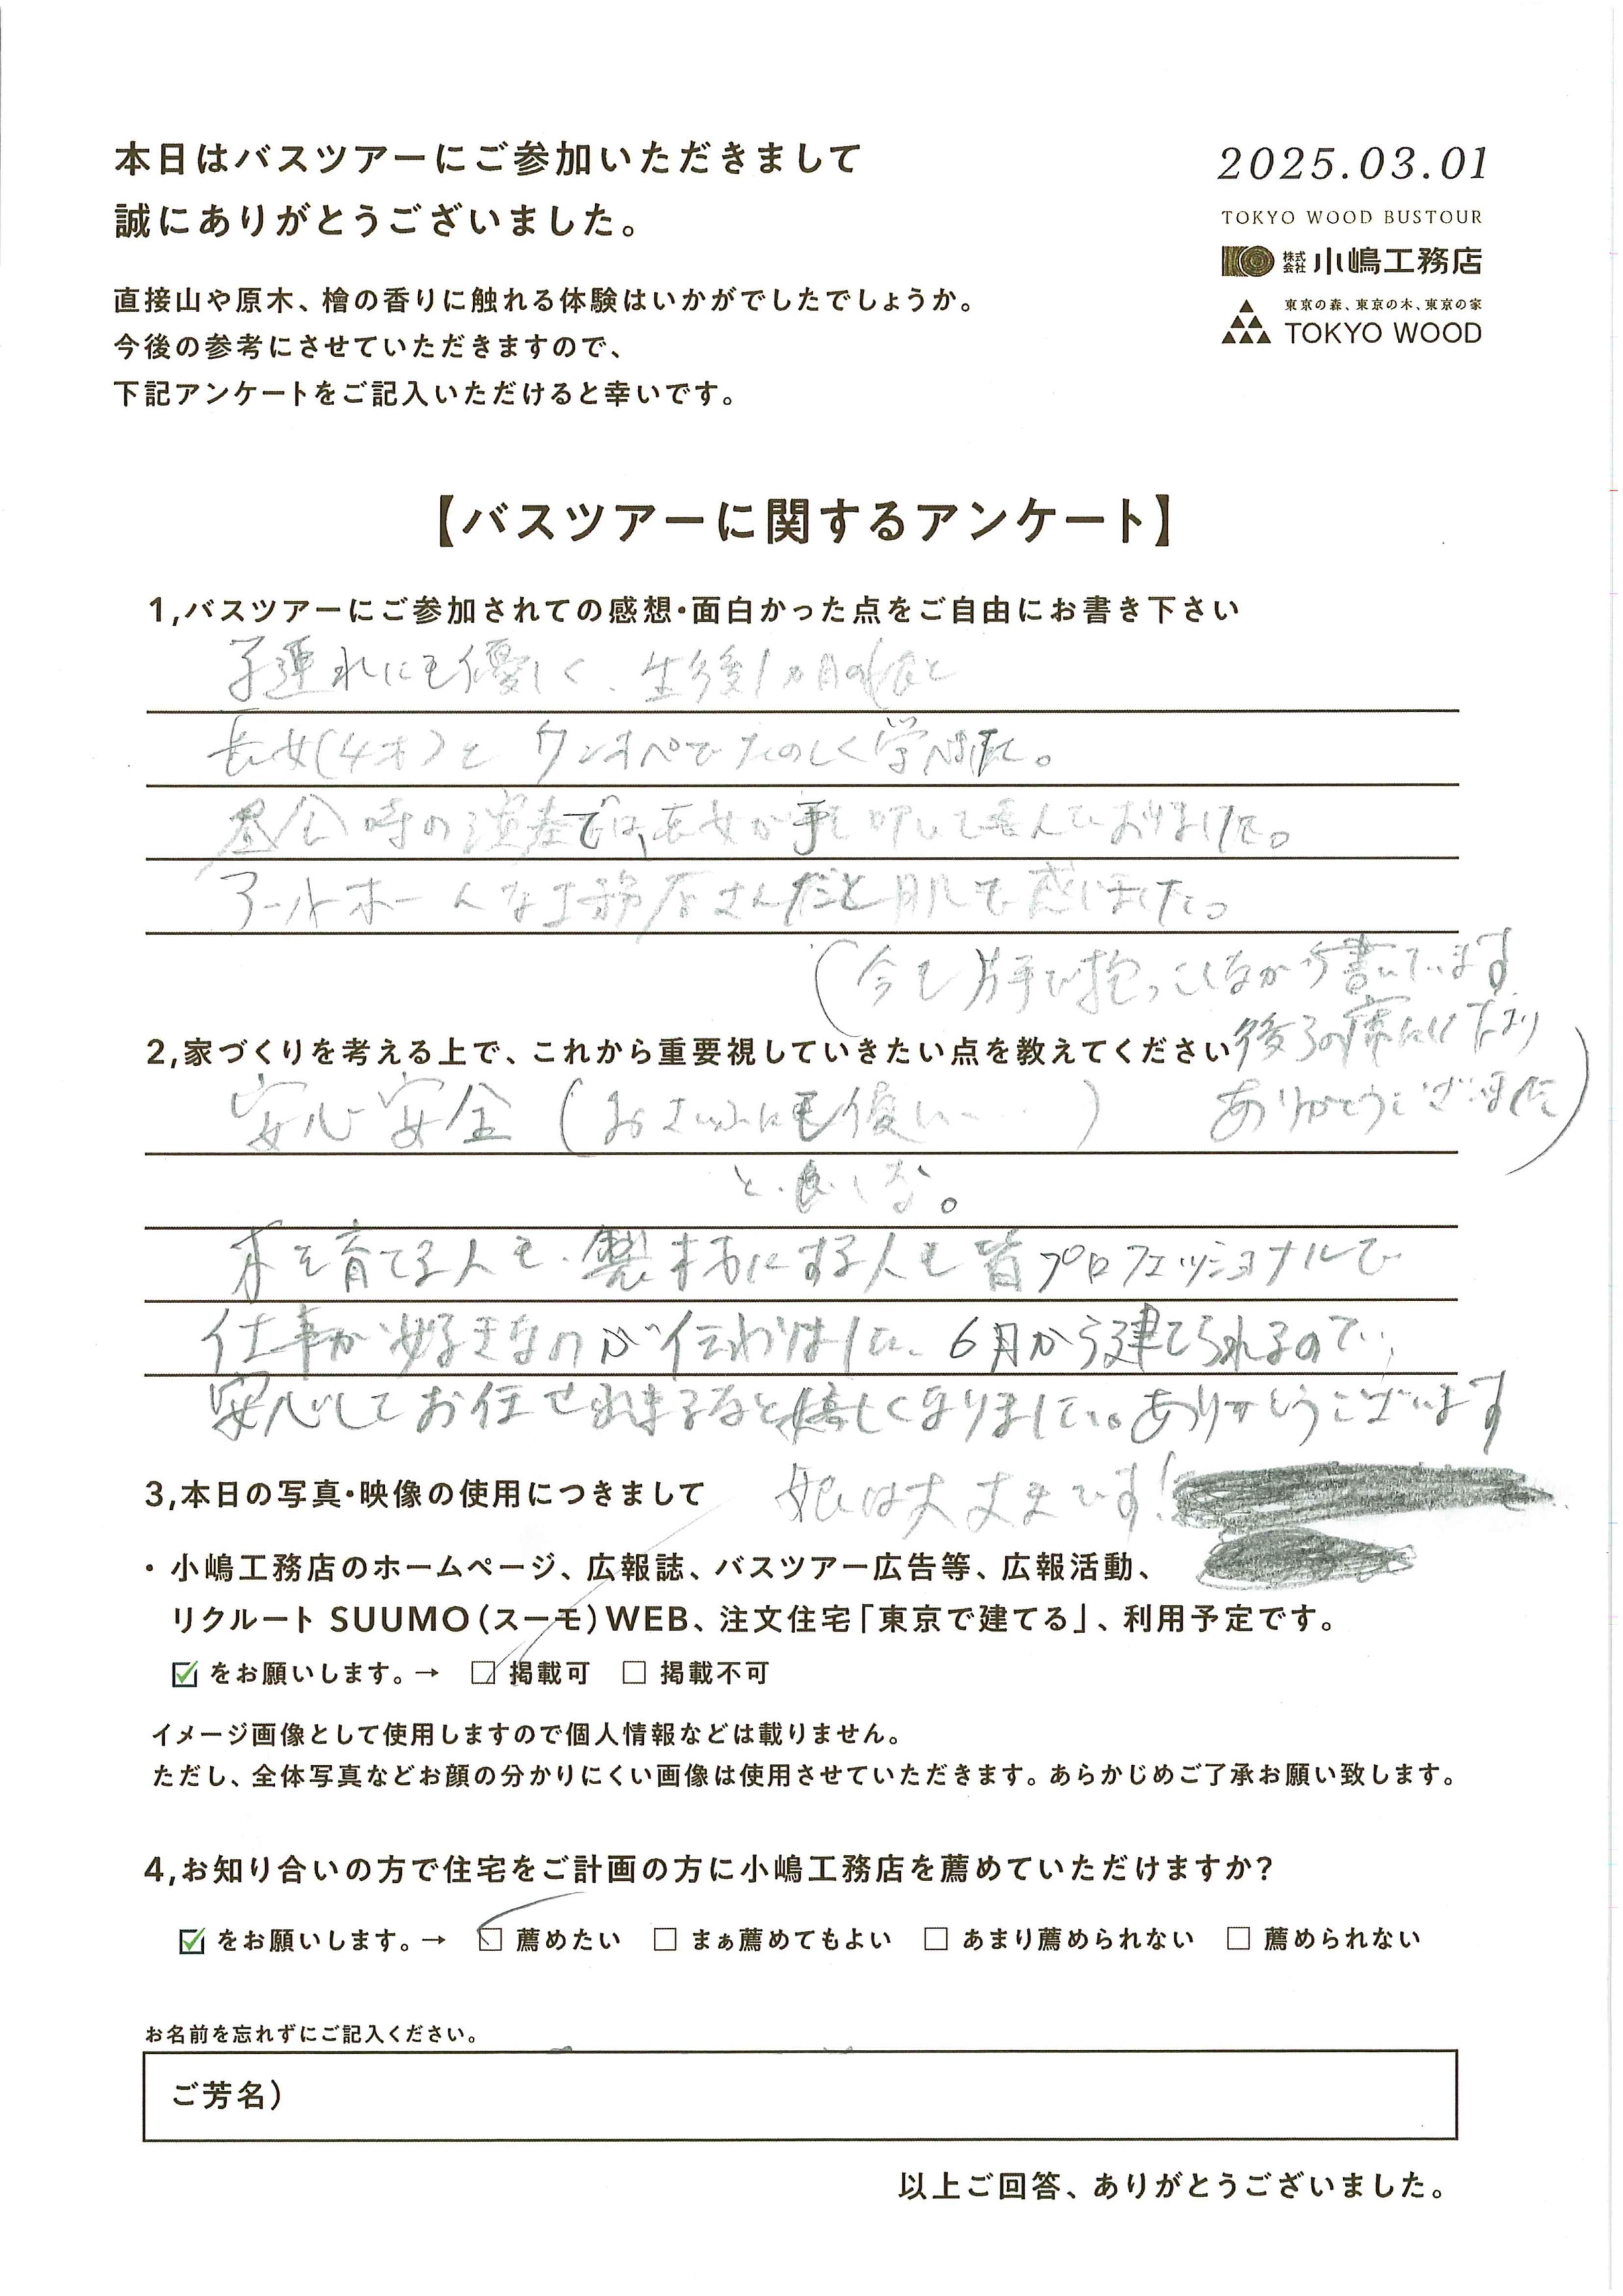 本日はバスツアーにご参加いただきまして
誠にありがとうございました。
2025.03.01
TOKYO WOOD BUSTOUR
株式会社 小嶋工務店
東京の森、東京の木、東京の家
TOKYO WOOD
直接山や原木、檜の香りに触れる体験はいかがでしたでしょうか。
今後の参考にさせていただきますので、
下記アンケートをご記入いただけると幸いです。
【バスツアーに関するアンケート】
1,バスツアーにご参加されての感想・面白かった点をご自由にお書き下さい
子連れにも優しく、生後1ヵ月の娘と
長女(4才)と ワンオペでたのしく学べました。
昼会時の演奏では、長女が手を叩いて喜んでおりました。
アールホームな工務店さんだと肌で感じました。
(今も片手で抱っこしながら書いています
後ろの席にして下さり
ありがとうございました)
2,家づくりを考える上で、これから重要視していきたい点を教えてください
安心安全(おさいふにも優しい…)
と、良しな。
木を育てる人も、製材にする人も皆プロフェッショナルで
仕事が好きなのが伝わりました。6月から建てられるので、
安心してお任せ出来るなと嬉しくなりました。ありがとうございます
3,本日の写真・映像の使用につきまして
娘は大丈夫です!
・小嶋工務店のホームページ、広報誌、バスツアー広告等、広報活動、
リクルート SUUMO(スーモ)WEB、注文住宅「東京で建てる」、利用予定です。
☑をお願いします。→ □掲載可 □掲載不可
イメージ画像として使用しますので個人情報などは載りません。
ただし、全体写真などお顔の分かりにくい画像は使用させていただきます。あらかじめご了承お願い致します。
4,お知り合いの方で住宅をご計画の方に小嶋工務店を薦めていただけますか?
☑をお願いします。→ □薦めたい □まぁ薦めてもよい □あまり薦められない □薦められない
お名前を忘れずにご記入ください。
ご芳名)
以上ご回答、ありがとうございました。